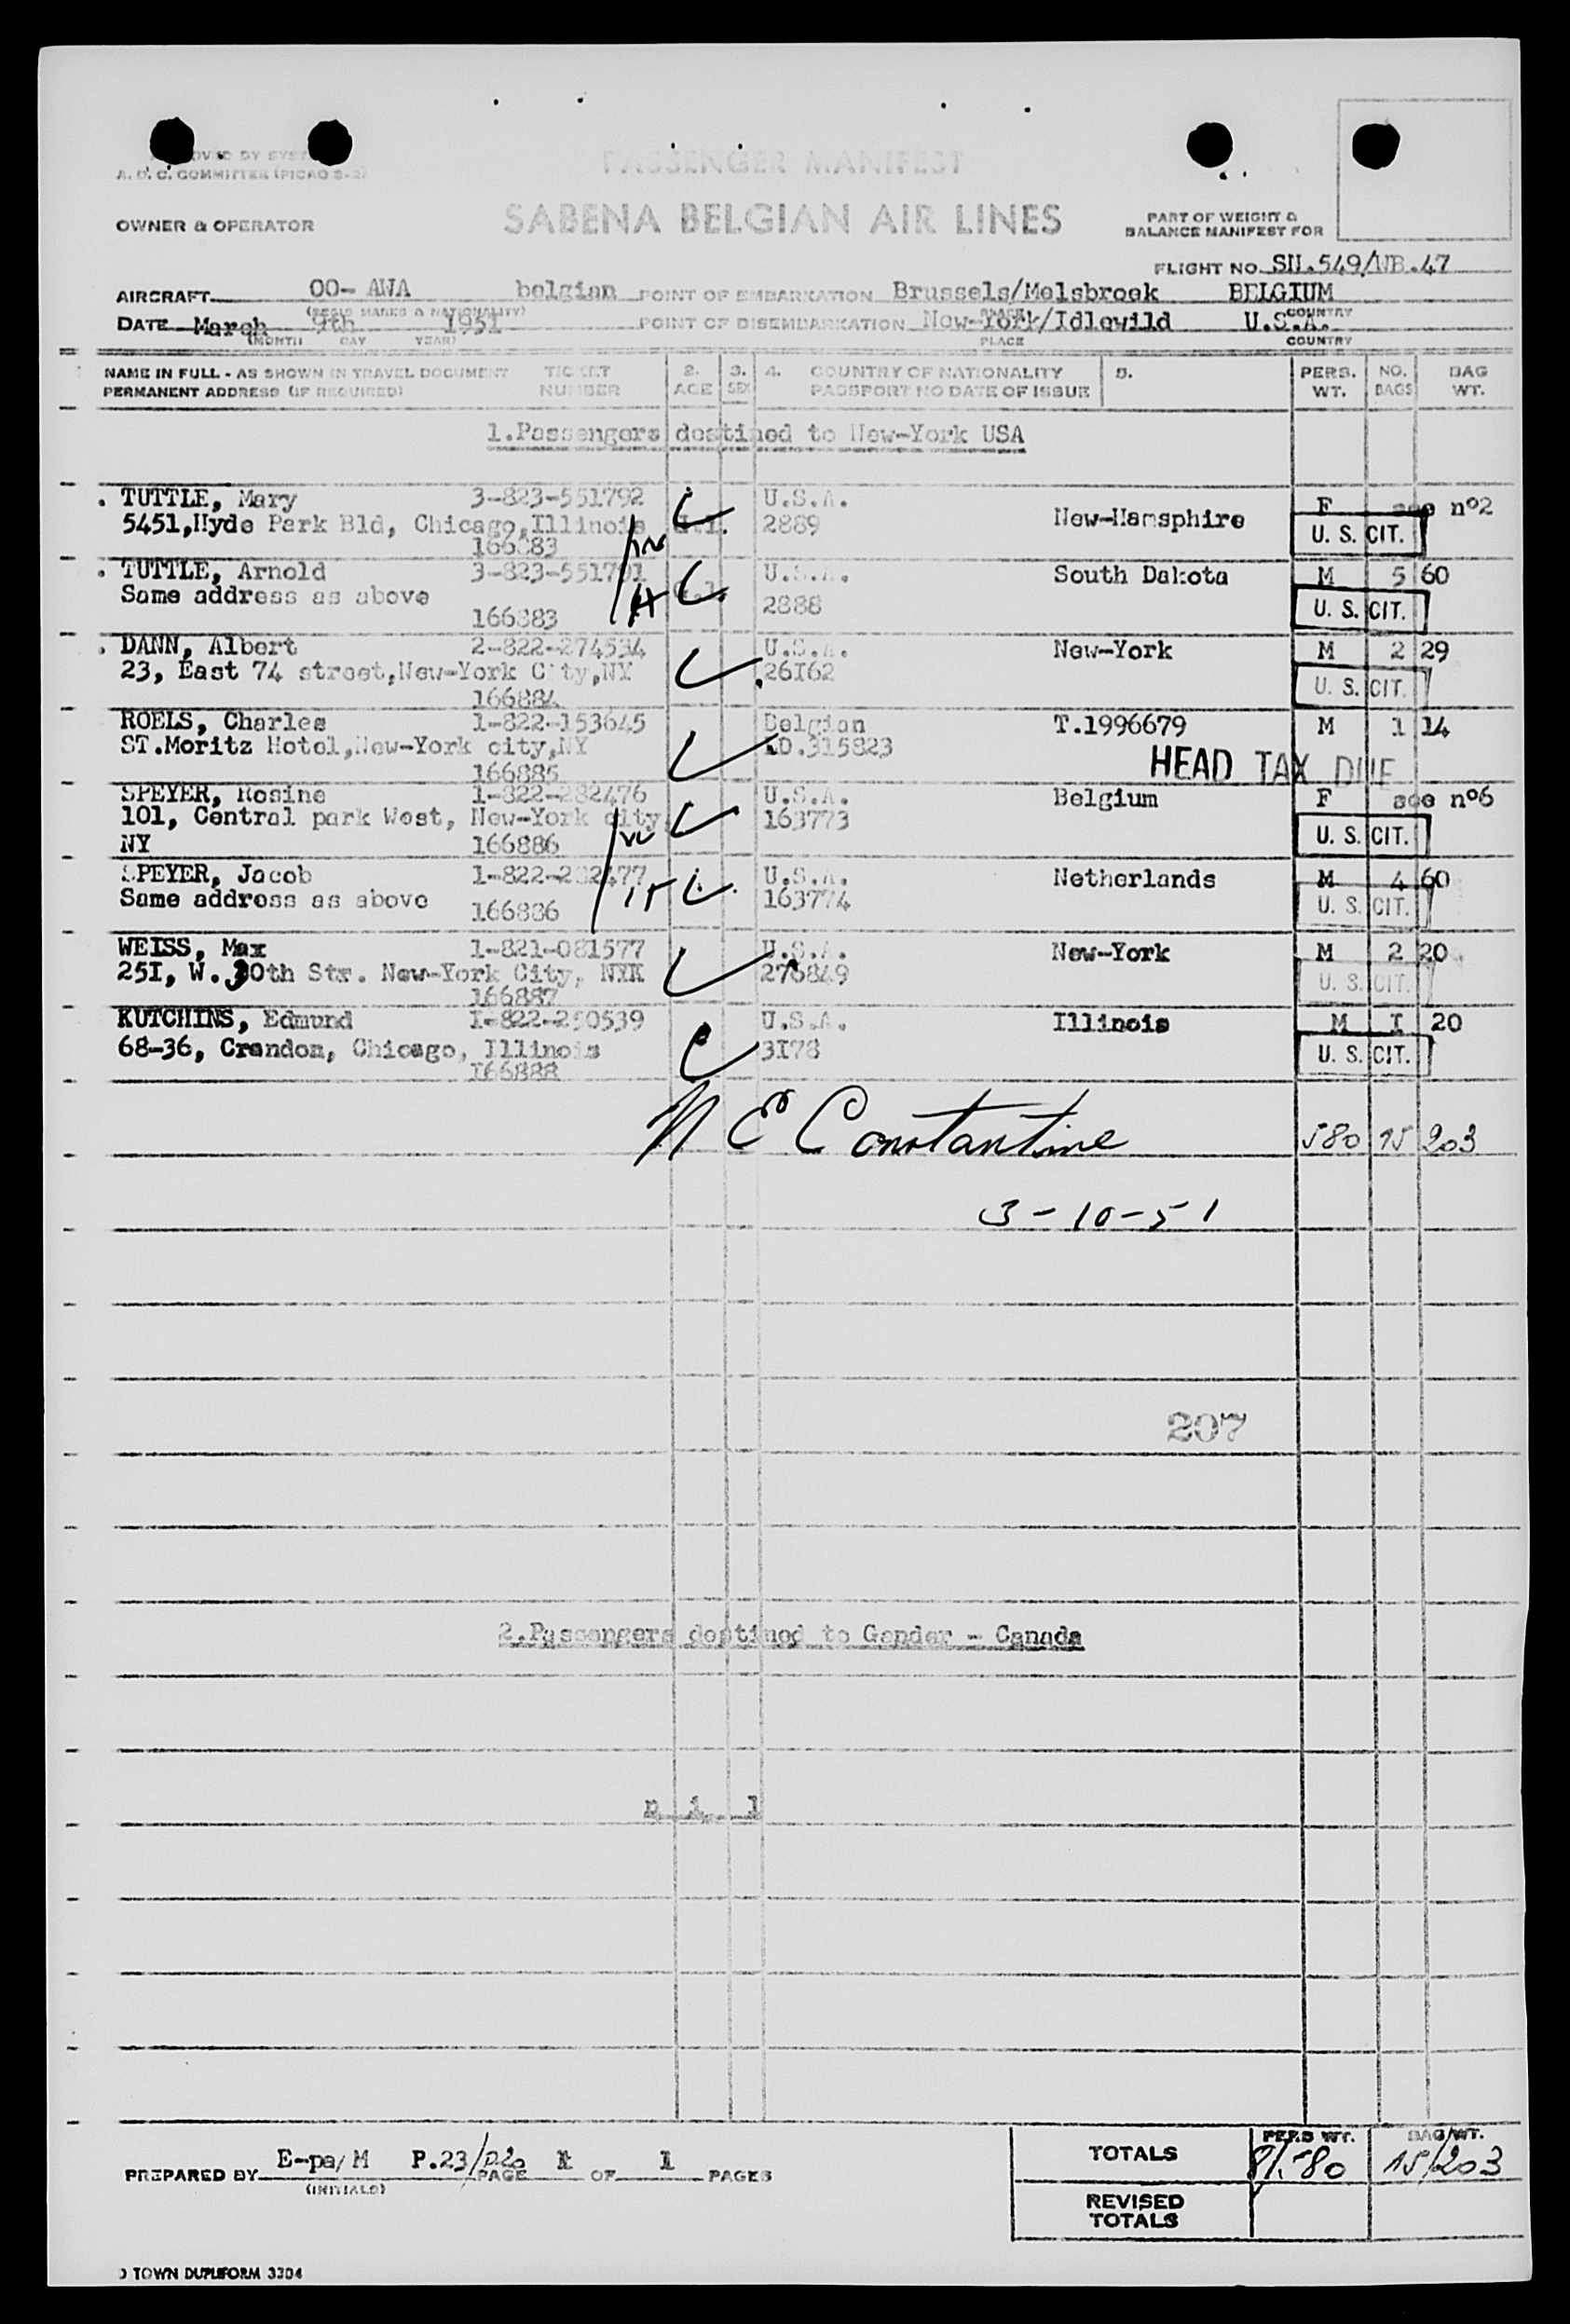 A. O. C. COMMITTEE (PICAO S-2)
PASSENGER MANIFEST
OWNER & OPERATOR SABENA BELGIAN AIR LINES PART OF WEIGHT &
BALANCE MANIFEST FOR
FLIGHT NO. SN.549/WB.47
AIRCRAFT OO- AWA belgian POINT OF EMBARKATION Brussels/Melsbroek BELGIUM
(REGIS MARKS & NATIONALITY) PLACE COUNTRY
DATE March 9th 1951 POINT OF DISEMBARKATION New-York/Idlewild U.S.A.
(MONTH DAY YEAR) PLACE COUNTRY
NAME IN FULL - AS SHOWN IN TRAVEL DOCUMENT TICKET 2. 3. 4. COUNTRY OF NATIONALITY 5. PERS. NO. BAG
PERMANENT ADDRESS (IF REQUIRED) NUMBER AGE SEX PASSPORT NO DATE OF ISSUE WT. BAGS WT.
1.Passengers destined to New-York USA
. TUTTLE, Mary 3-823-551792 U.S.A. F see nº2
5451,Hyde Park Bld, Chicago,Illinois 2889 New-Hamsphire U. S. CIT.
166883
. TUTTLE, Arnold 3-823-551791 U.S.A. South Dakota M 5 60
Same address as above 2888 U. S. CIT.
166883
. DANN, Albert 2-822-274534 U.S.A. New-York M 2 29
23, East 74 street,New-York City,NY 26I62 U. S. CIT.
166884
ROELS, Charles 1-822-153645 Belgian T.1996679 M 1 14
ST.Moritz Hotel,New-York city,NY D.315823 HEAD TAX DUE
166885
SPEYER, Rosine 1-822-282476 U.S.A. Belgium F see nº6
101, Central park West, New-York city 163773 U. S. CIT.
NY 166886
SPEYER, Jacob 1-822-282477 U.S.A. Netherlands M 4 60
Same address as above 166886 163774 U. S. CIT.
WEISS, Max 1-821-081577 U.S.A. New-York M 2 20
25I, W. 30th Str. New-York City, NYK 276849 U. S. CIT.
166887
KUTCHINS, Edmund I-822-250539 U.S.A. Illinois M I 20
68-36, Crandon, Chicago, Illinois 3I78 U. S. CIT.
I66888
N E Constantine 580 15 203
3-10-51
207
2.Passengers destined to Gander - Canada
n i l
PERS WT. BAG WT.
PREPARED BY E-pa/M P.23/ PAGE 1 OF 1 PAGES TOTALS 8/580 15/203
(INITIALS)
REVISED
TOTALS
TOWN DUPLIFORM 3304